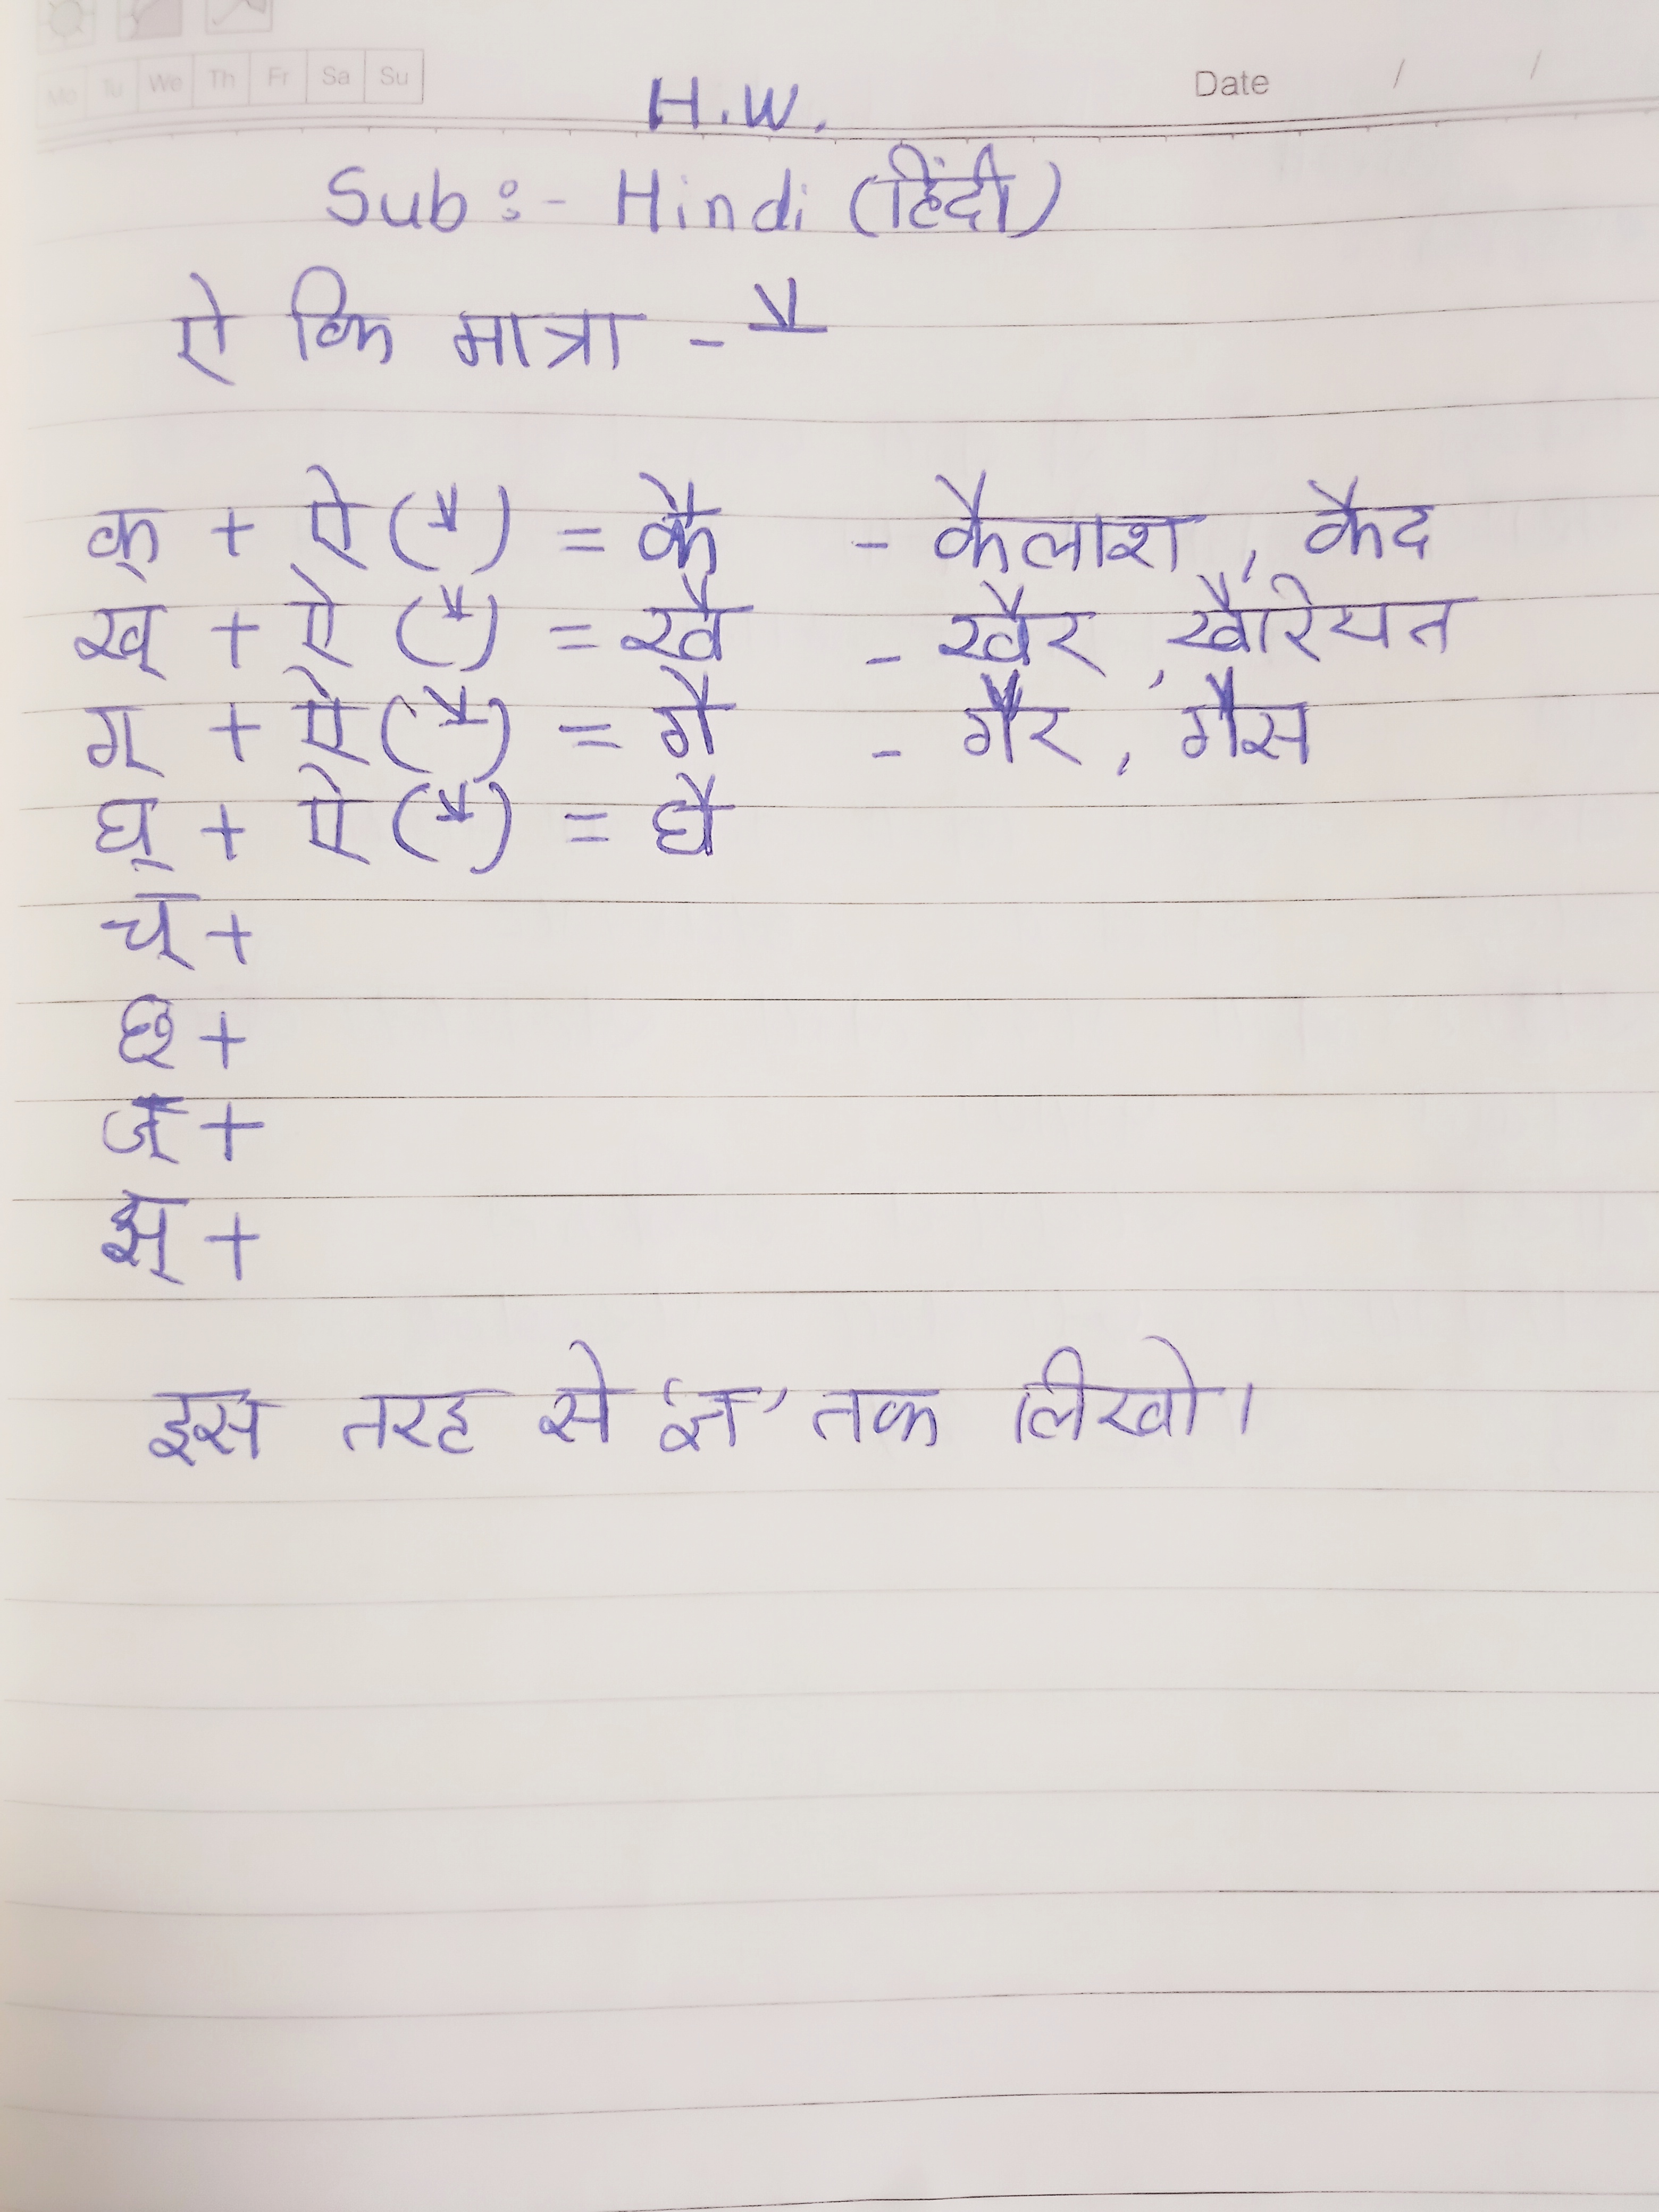 Mo Tu We Th Fr Sa Su
Date / /
H.W.
Sub :- Hindi (हिंदी)
ऐ कि मात्रा - ै
क् + ऐ (ै) = कै - कैलाश , कैद
ख् + ऐ (ै) = खै - खैर , खैरियत
ग् + ऐ (ै) = गै - गैर , गैस
घ् + ऐ (ै) = घै
च् +
छ् +
ज् +
झ् +
इस तरह से 'ज्ञ' तक लिखो।